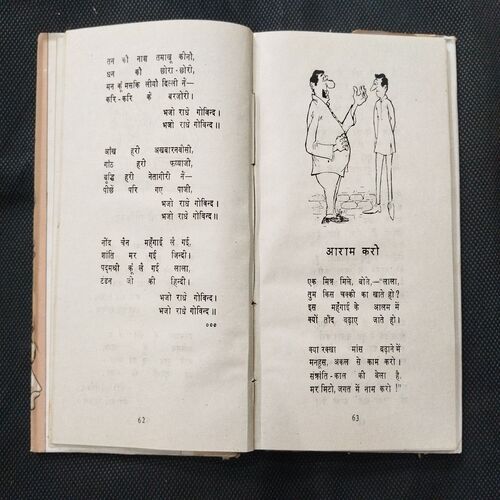 तन कौ नास तमाखू कीनौ,
धन कौ छोरा-छोरी,
मन कूं मसकि लीयौ दिल्ली नें—
करि-करि के बरजोरी।
भजो राधे गोविन्द।
भजो राधे गोविन्द॥
आँख हरी अखबारनवीसी,
गाँठ हरी कव्वाजी,
बुद्धि हरी नेतागीरी नें—
पीछें परि गए पाजी,
भजो राधे गोविन्द।
भजो राधे गोविन्द॥
नींद चैन महँगाई लै गई,
शांति मर गई जिन्दी।
पद्मश्री कूं लै गई लाला,
टंडन जी की हिन्दी।
भजो राधे गोविन्द।
भजो राधे गोविन्द॥
०००
62
आराम करो
एक मित्र मिले, बोले,—"लाला,
तुम किस चक्की का खाते हो?
इस महँगाई के आलम में
क्यों तोंद बढ़ाए जाते हो।
क्या रक्खा मांस बढ़ाने में
मनहूस, अकल से काम करो।
संक्रांति-काल की बेला है,
मर मिटो, जगत में नाम करो!"
63